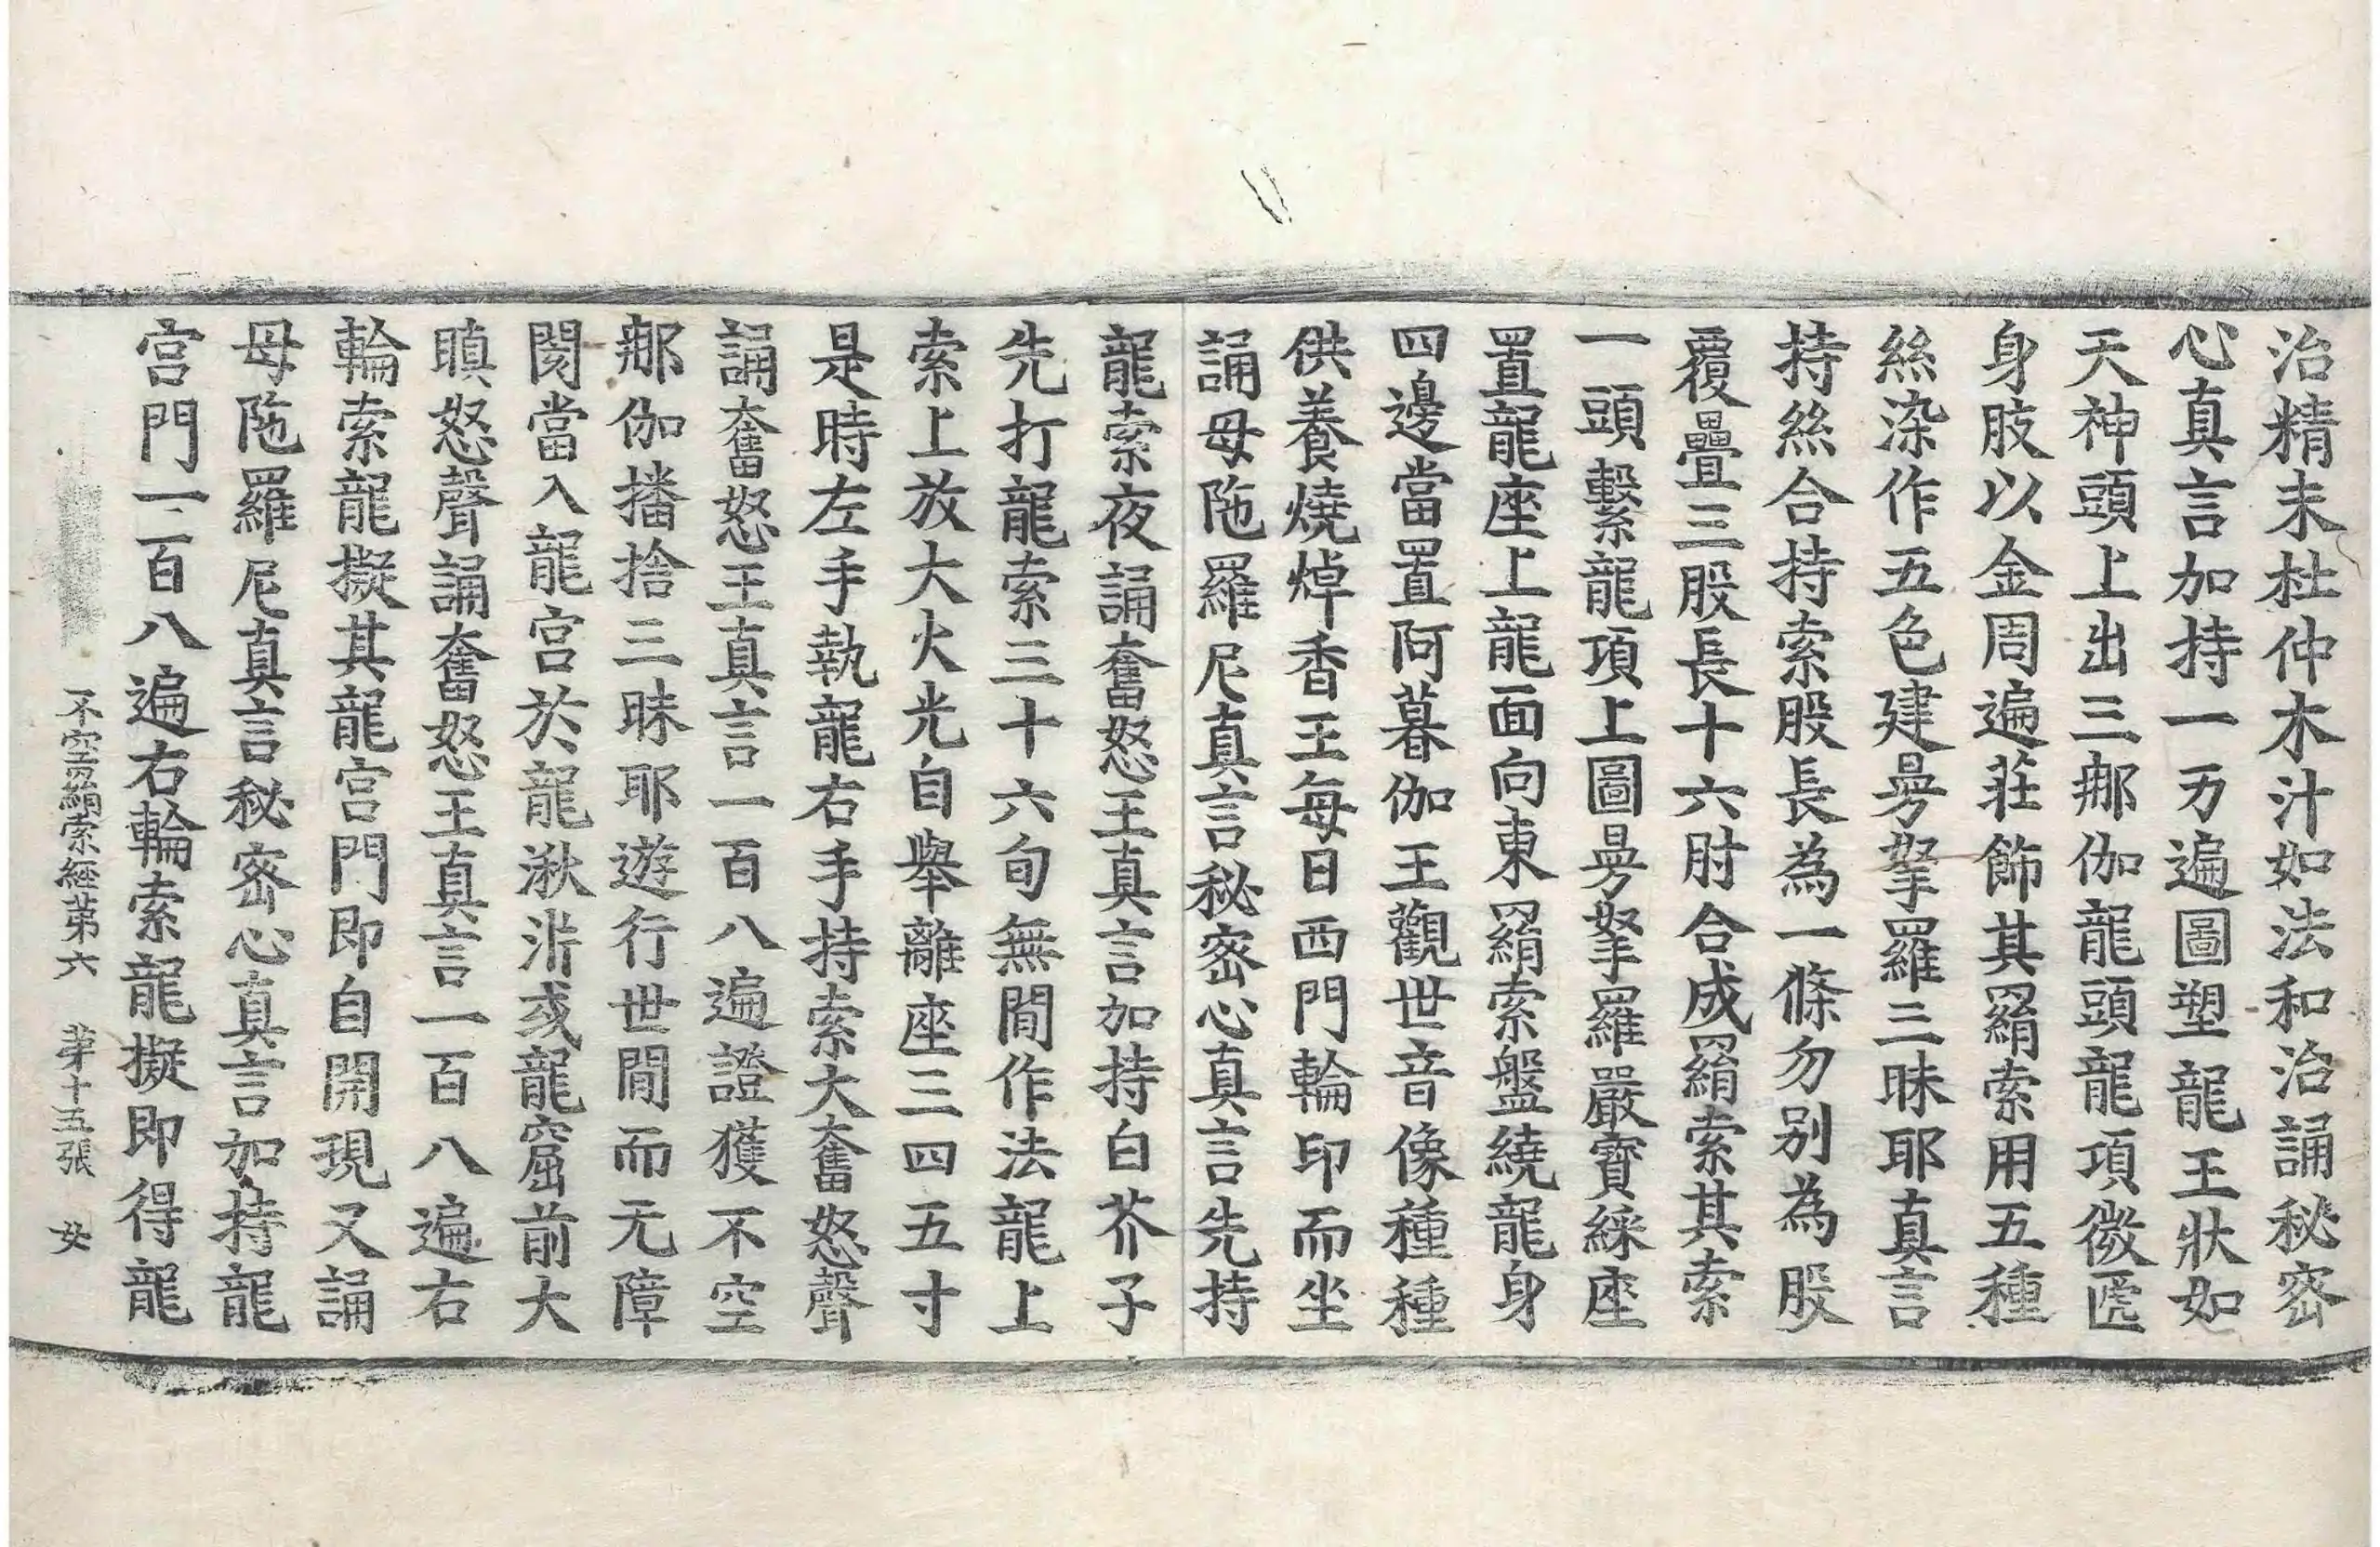 治精末杜仲木汁如法和治誦秘密
心真言加持一万遍圖塑龍王狀如
天神頭上出三𨚗伽龍頭龍項微匾
身肢以金周遍莊飾其羂索用五種
絲染作五色建曼拏羅三昧耶真言
持絲合持索股長為一條勿別為股
覆疊三股長十六肘合成羂索其索
一頭繫龍項上圖曼拏羅嚴寶綵座
置龍座上龍面向東羂索盤繞龍身
四邊當置阿暮伽王觀世音像種種
供養燒焯香王每日西門輪印而坐
誦母陁羅尼真言秘密心真言先持
龍索夜誦奮怒王真言加持白芥子
先打龍索三十六旬無閒作法龍上
索上放大火光自舉離座三四五寸
是時左手執龍右手持索大奮怒聲
誦奮怒王真言一百八遍證獲不空
𨚗伽播捨三昧耶遊行世閒而无障
閡當入龍宮於龍湫㳌或龍窟前大
瞋怒聲誦奮怒王真言一百八遍右
輪索龍擬其龍宮門即自開現又誦
母陁羅尼真言秘密心真言加持龍
宮門一百八遍右輪索龍擬即得龍
不空羂索經第六 第十五張 女